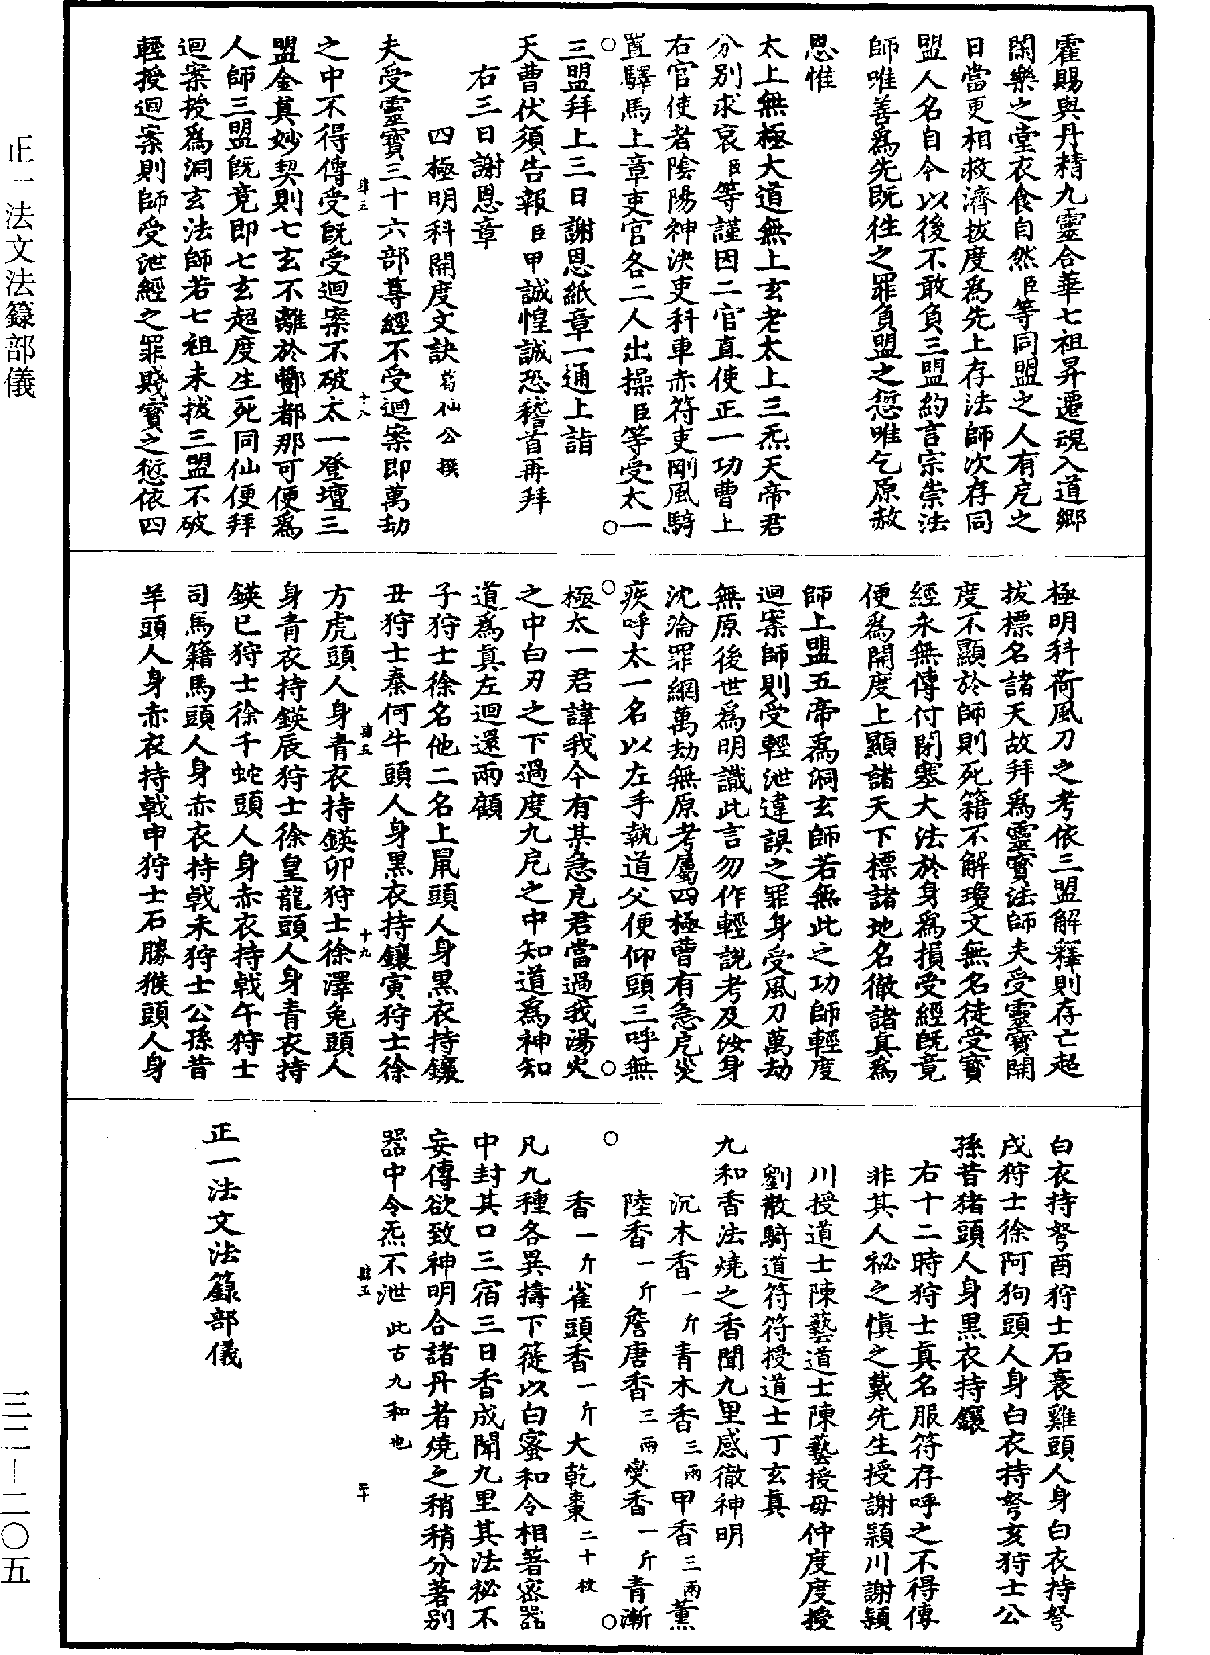 霍賜與丹精九靈合華七祖昇遷魂入道鄉
閑樂之堂衣食自然臣等同盟之人有危之
日當更相救濟拔度為先上存法師次存同
盟人名自今以後不敢負三盟約言宗崇法
師唯善為先既往之罪負盟之愆唯乞原赦
恩惟
太上無極大道無上玄老太上三炁天帝君
分別求哀臣等謹因二官直使正一功曹上
右官使者陰陽神決吏科車赤符吏剛風騎
置驛馬上章吏官各二人出操臣等受太一
三盟拜上三日謝恩紙章一通上詣
天曹伏須告報臣甲誠惶誠恐稽首再拜
右三日謝恩章
四極明科開度文訣葛仙公撰
夫受靈寶三十六部尊經不受迴案即萬劫
之中不得傳受既受迴案不破太一登壇三
盟金真妙契則七玄不離於酆都那可便為
人師三盟既竟即七玄超度生死同仙便拜
迴案授為洞玄法師若七祖未拔三盟不破
輕授迴案則師受泄經之罪賤寶之愆依四
極明科荷風刀之考依三盟解釋則存亡超
拔標名諸天故拜為靈寶法師夫受靈寶開
度不顯於師則死籍不解瓊文無名徒受寶
經永無傳付閉塞大法於身為損受經既竟
便為開度上顯諸天下標諸地名徹諸真為
師上盟五帝為洞玄師若無此之功師輕度
迴案師則受輕泄違誤之罪身受風刀萬劫
無原後世為明識此言勿作輕說考及汝身
沈淪罪網萬劫無原考屬四極曹有急危災
疾呼太一名以左手執道父便仰頭三呼無
極太一君諱我今有某急危君當過我湯火
之中白刃之下過度九危之中知道為神知
道為真左迴還兩顧
子狩士徐名他二名上鼠頭人身黑衣持钁
丑狩士秦何牛頭人身黑衣持钁寅狩士徐
方虎頭人身青衣持鍈卯狩士徐澤兔頭人
身青衣持鍈辰狩士徐皇龍頭人身青衣持
鍈巳狩士徐千蛇頭人身赤衣持戟午狩士
司馬籍馬頭人身赤衣持戟未狩士公孫昔
羊頭人身赤衣持戟申狩士石勝猴頭人身
白衣持弩酉狩士石衰雞頭人身白衣持弩
戌狩士徐阿狗頭人身白衣持弩亥狩士公
孫昔猪頭人身黑衣持钁
右十二時狩士真名服符存呼之不得傳
非其人祕之慎之戴先生授謝潁川謝潁
川授道士陳藝道士陳藝授毋仲度度授
劉散騎道符符授道士丁玄真
九和香法燒之香聞九里感徹神明
沉木香一斤青木香三兩甲香三兩薰
陸香一斤詹唐香三兩煗香一斤青漸
香一斤雀頭香一斤大乾棗二十枚
凡九種各異擣下篵以白蜜和令相著密器
中封其口三宿三日香成聞九里其法祕不
妄傳欲致神明合諸丹者燒之稍稍分著別
器中令炁不泄此古九和也
正一法文法籙部儀
正一法文法籙部儀
三二—二〇五